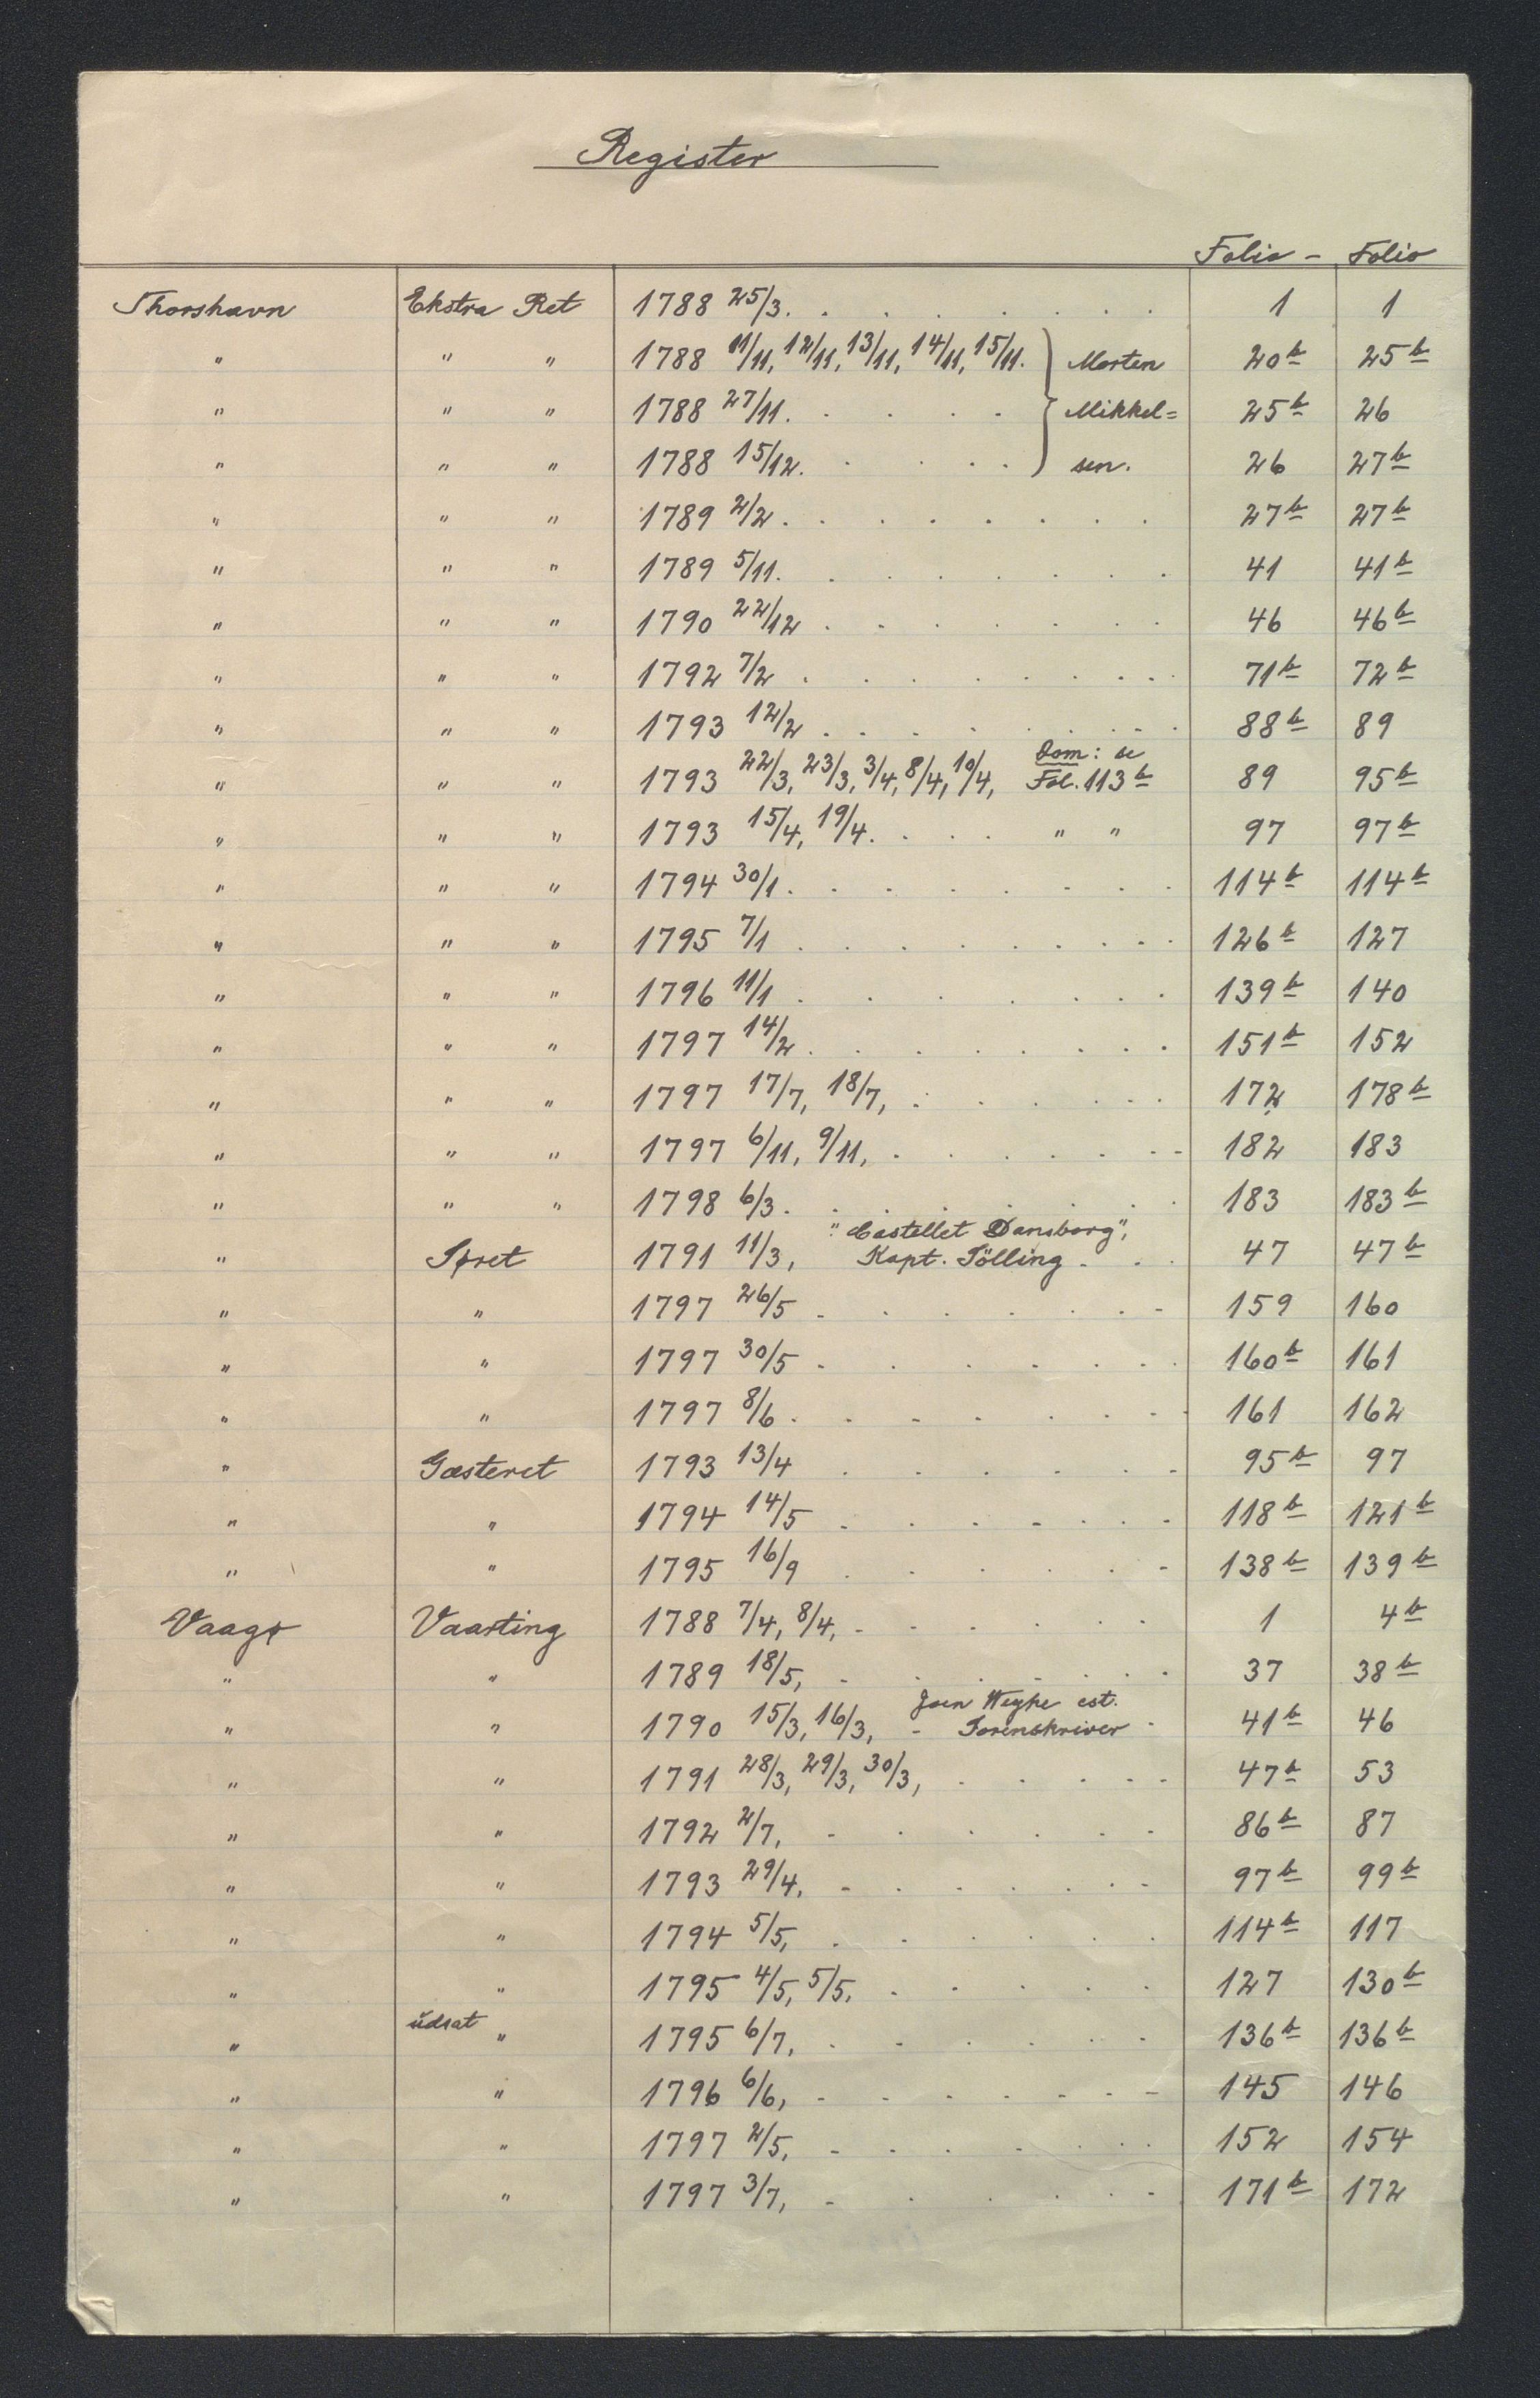 Register
Folio - Folio
Thorshavn Ekstra Ret 1788 25/3. . . . . . . . 1 1
" " " 1788 11/11, 12/11, 13/11, 14/11, 15/11. } Morten 20b 25b
" " " 1788 27/11. . . . . } Mikkel= 25b 26
" " " 1788 15/12. . . . . } sen. 26 27b
" " " 1789 2/2 . . . . . . . . 27b 27b
" " " 1789 5/11. . . . . . . . 41 41b
" " " 1790 22/12 . . . . . . . 46 46b
" " " 1792 7/2 . . . . . . . . 71b 72b
" " " 1793 12/2 . . . . . . . . 88b 89
Dom: se
" " " 1793 22/3, 23/3, 3/4, 8/4, 10/4, Fol. 113b 89 95b
" " " 1793 15/4, 19/4. . . . " " 97 97b
" " " 1794 30/1. . . . . . . . 114b 114b
" " " 1795 7/1 . . . . . . . . 126b 127
" " " 1796 11/1 . . . . . . . 139b 140
" " " 1797 14/2. . . . . . . . 151b 152
" " " 1797 17/7, 18/7, . . . . . . 172 178b
" " " 1797 6/11, 9/11, . . . . . . 182 183
" " " 1798 6/3. . . . . . . . 183 183b
"Castellet Dansborg",
" Søret 1791 11/3, Kapt. Sölling - . . 47 47b
" " 1797 26/5 - . . . . . . - 159 160
" " 1797 30/5 - . . . . . . 160b 161
" " 1797 8/6 . . . . . . . . 161 162
" Gæsteret 1793 13/4 . . . . . . - 95b 97
" " 1794 14/5 . . . . . . - 118b 121b
" " 1795 16/9 . . . . . . - 138b 139b
Vaagø Vaarting 1788 7/4, 8/4, - . . . . . . 1 4b
" " 1789 18/5, - . . . . . . 37 38b
Joen Weyhe est.
" " 1790 15/3, 16/3, - Sorenskriver - 41b 46
" " 1791 28/3, 29/3, 30/3, . . . . - 47b 53
" " 1792 2/7, - . . . . . . 86b 87
" " 1793 29/4, - . . . . . - 97b 99b
" " 1794 5/5, . . . . . . . 114b 117
" " 1795 4/5, 5/5, . . . . . . 127 130b
" udsat " 1795 6/7, . . . . . . . 136b 136b
" " 1796 6/6, - . . . . . - - 145 146
" " 1797 2/5, - . . . . . . . 152 154
" " 1797 3/7, - . . . . . - 171b 172